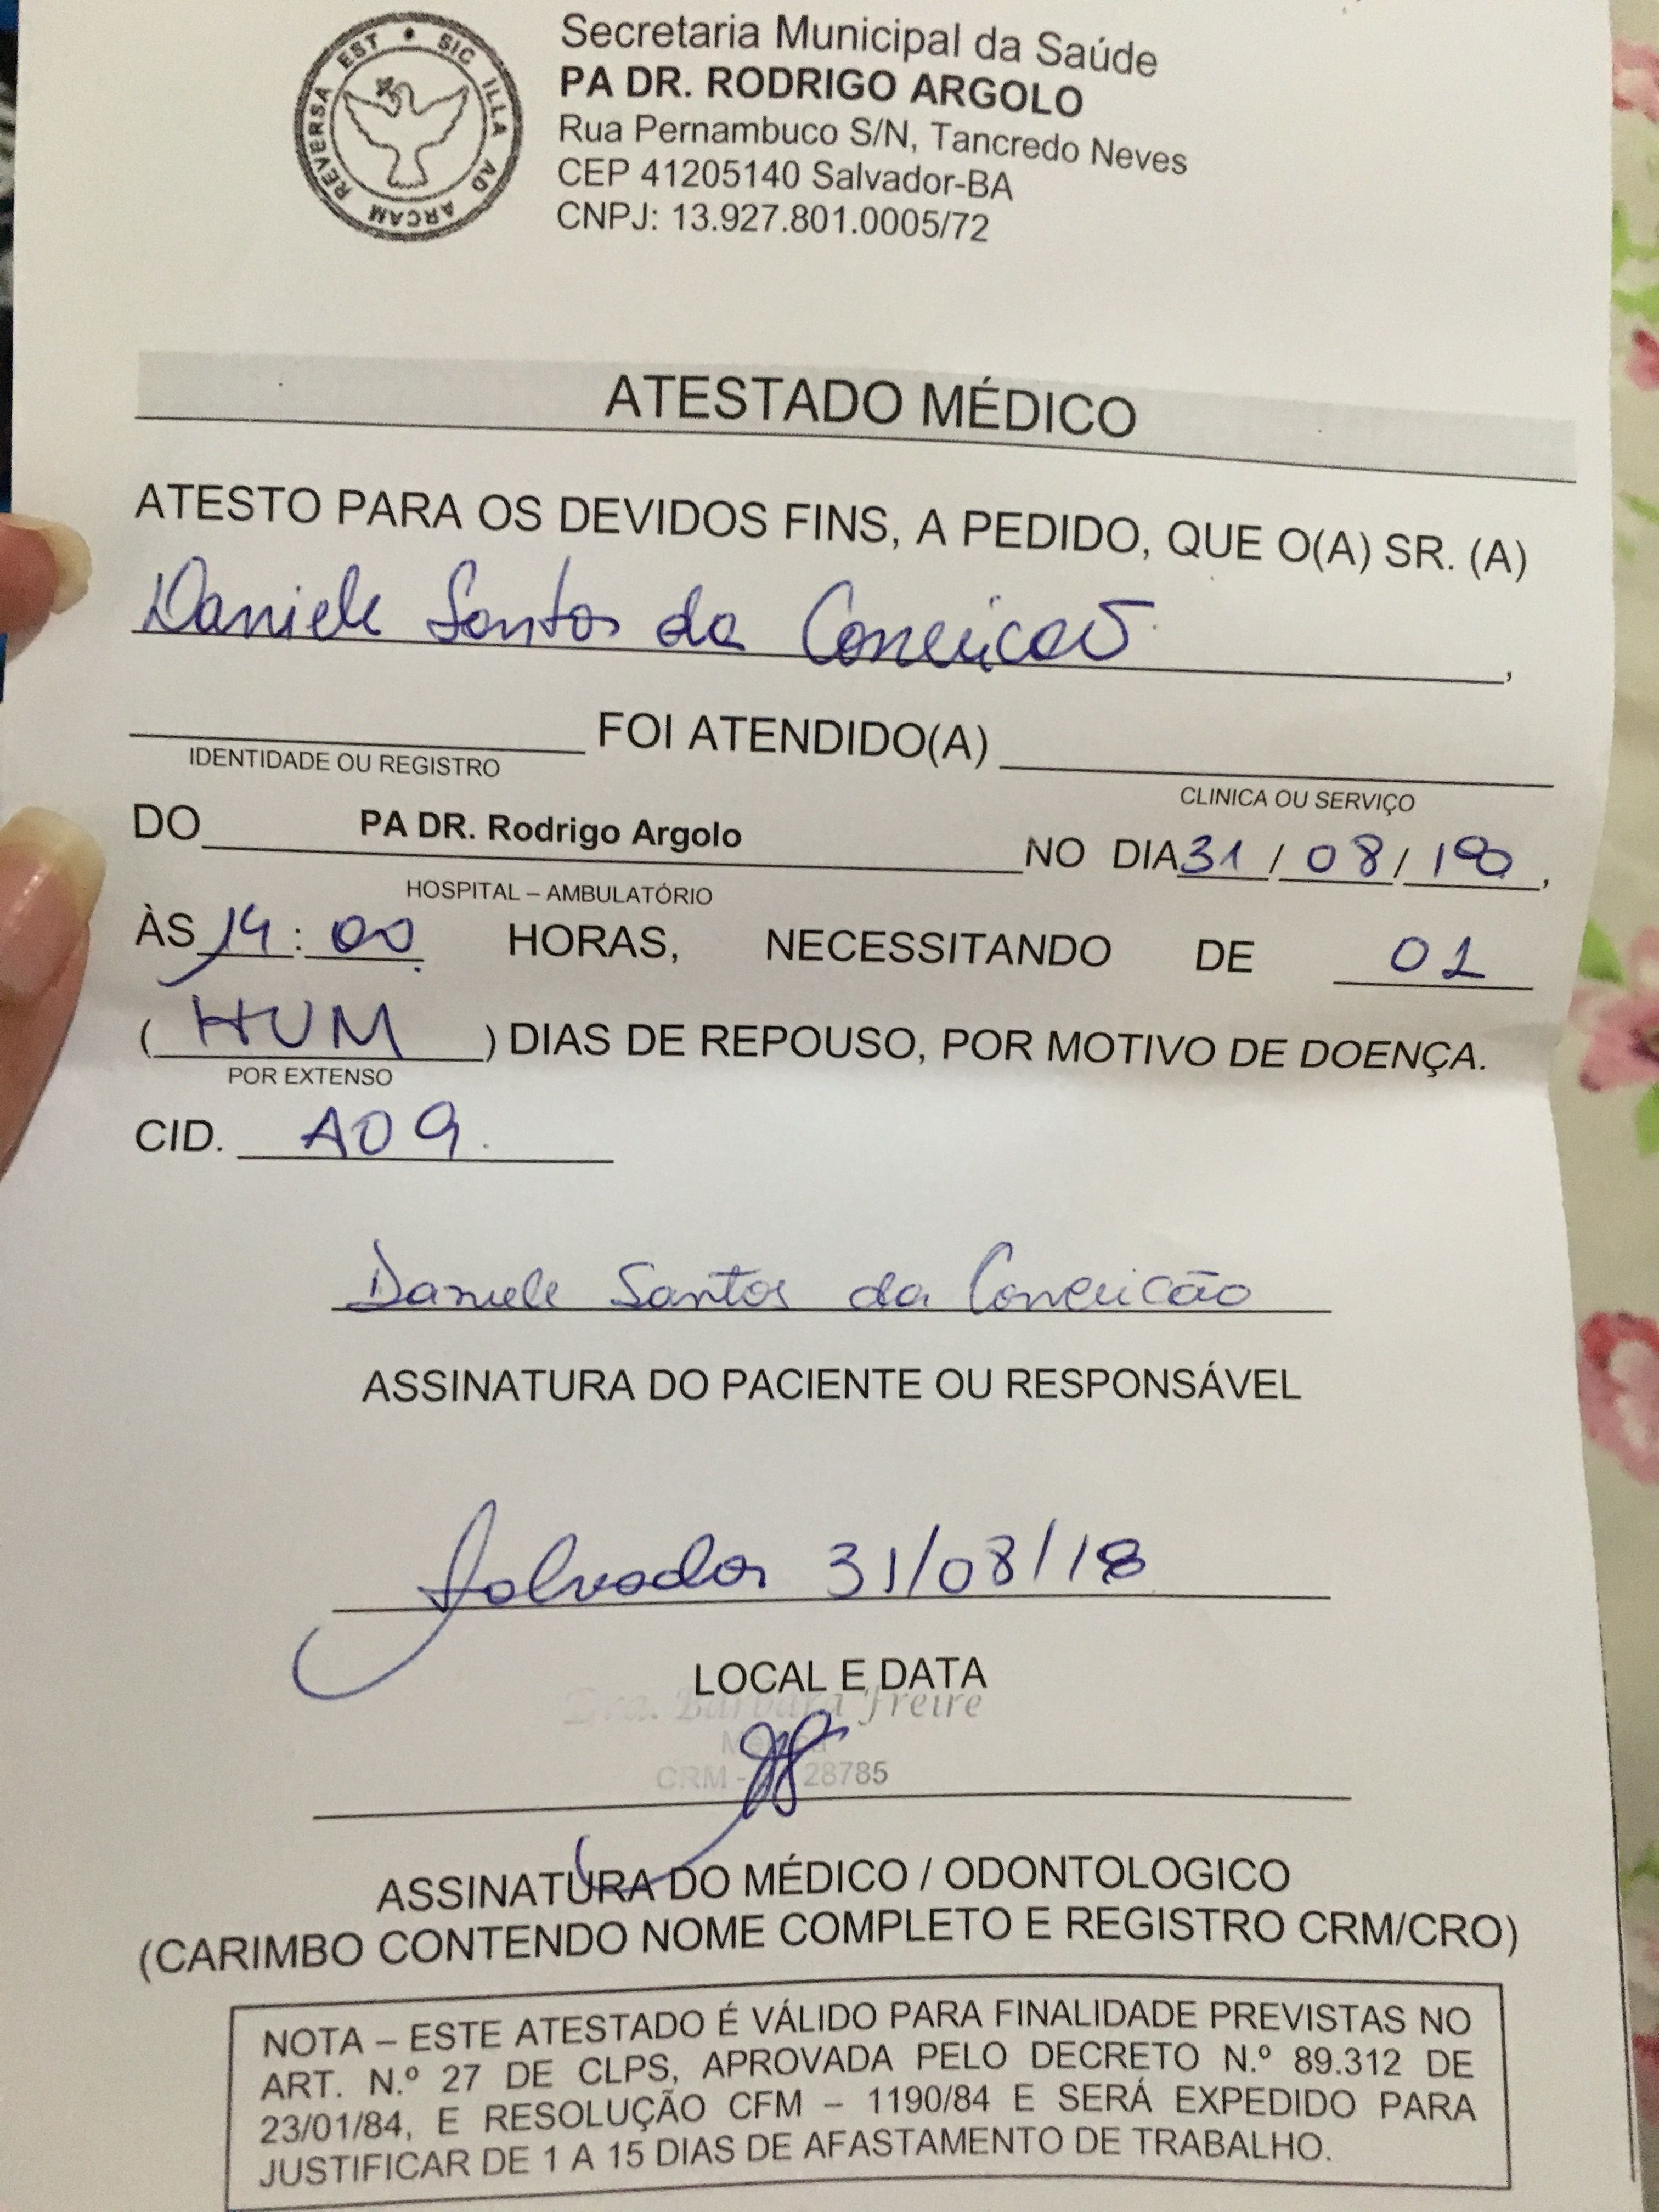 SIC ILLA AD ARCAM REVERSA EST
Secretaria Municipal da Saúde
PA DR. RODRIGO ARGOLO
Rua Pernambuco S/N, Tancredo Neves
CEP 41205140 Salvador-BA
CNPJ: 13.927.801.0005/72
ATESTADO MÉDICO
ATESTO PARA OS DEVIDOS FINS, A PEDIDO, QUE O(A) SR. (A)
Daniele Santos da Conceicaõ ,
FOI ATENDIDO(A)
IDENTIDADE OU REGISTRO
CLINICA OU SERVIÇO
DO PA DR. Rodrigo Argolo NO DIA 31 / 08 / 18 ,
HOSPITAL – AMBULATÓRIO
ÀS 14 : 00 HORAS, NECESSITANDO DE 01
( HUM ) DIAS DE REPOUSO, POR MOTIVO DE DOENÇA.
POR EXTENSO
CID. A09.
Daniele Santos da Conceicão
ASSINATURA DO PACIENTE OU RESPONSÁVEL
Salvador 31/08/18
LOCAL E DATA
Dra. Barbara Freire
CRM - 28785
ASSINATURA DO MÉDICO / ODONTOLOGICO
(CARIMBO CONTENDO NOME COMPLETO E REGISTRO CRM/CRO)
NOTA – ESTE ATESTADO É VÁLIDO PARA FINALIDADE PREVISTAS NO
ART. N.º 27 DE CLPS, APROVADA PELO DECRETO N.º 89.312 DE
23/01/84, E RESOLUÇÃO CFM – 1190/84 E SERÁ EXPEDIDO PARA
JUSTIFICAR DE 1 A 15 DIAS DE AFASTAMENTO DE TRABALHO.